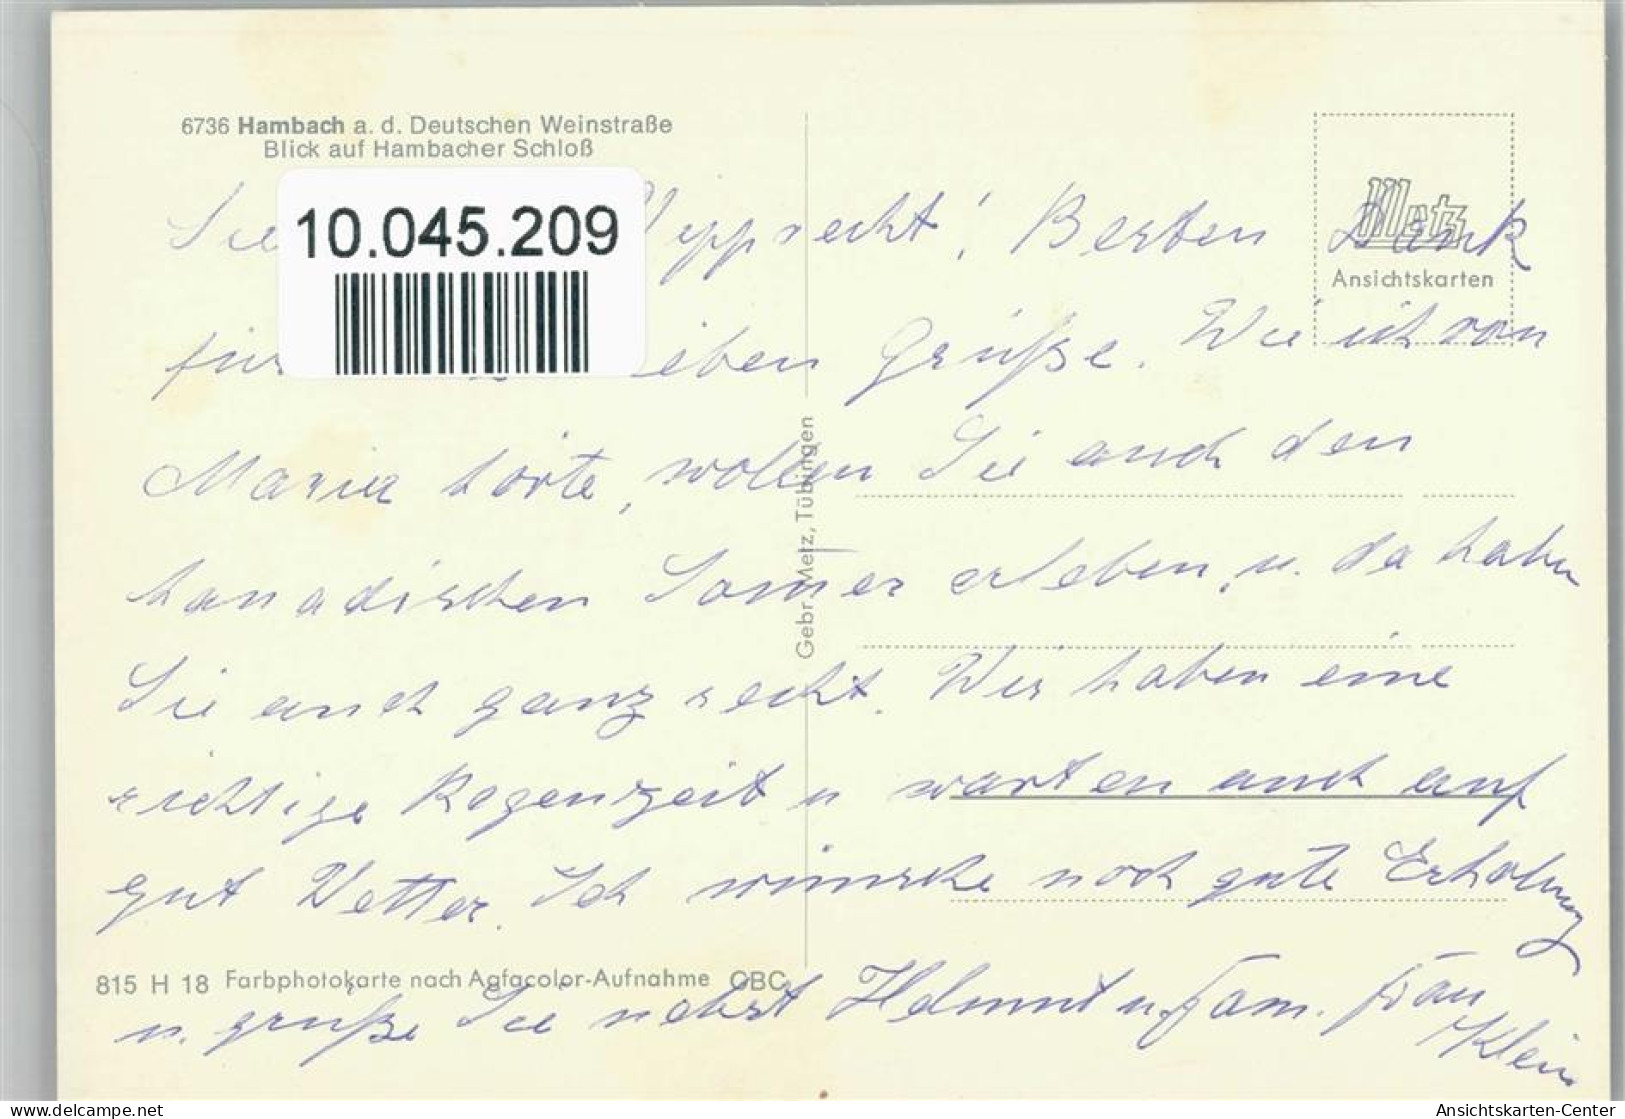 6736 Hambach a. d. Deutschen Weinstraße
Blick auf Hambacher Schloß
10.045.209
Metz
Ansichtskarten
! Besten Dank
für ieben Grüße. Wie ich von
Maria hörte, wollen Sie auch den
kanadischen Somer erleben, u. da haben
Sie auch ganz recht. Wir haben eine
richtige Regenzeit u warten auch auf
gut Wetter. Ich wünsche noch gute Erholung
u. grüße Sie nebst Helmut u. Fam. Frau
Klein
Gebr. Metz, Tübingen
815 H 18 Farbphotokarte nach Agfacolor-Aufnahme CBC
delcampe.net
Ansichtskarten-Center